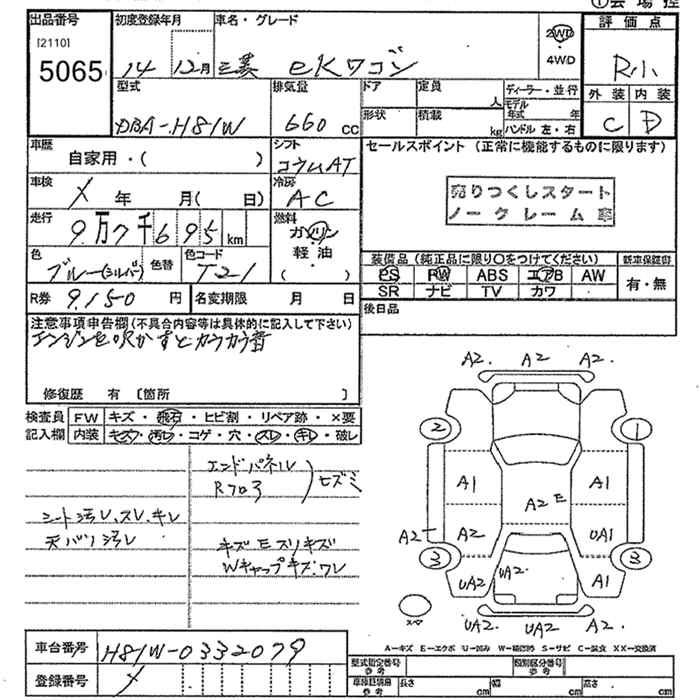 ①会場控
出品番号
[2110]
5065
初度登録年月
14 12月
車名・グレード
三菱 eKワゴン
2WD
・
4WD
評価点
R小
型式
DBA-H81W
排気量
660 cc
ドア
定員
人
ディーラー・並行
モデル年式 年
形状
積載
kg
ハンドル 左・右
外装 内装
C D
車歴
自家用・( )
シフト
コラムAT
セールスポイント (正常に機能するものに限ります)
車検
× 年 月( 日)
冷房
AC
売りつくしスタート
ノークレーム車
走行
9万7千695km
燃料
ガソリン
軽油
( )
色
ブルー(シルバ)
色替
色コード
T21
装備品 (純正品に限り○をつけてください)
新車保証書
PS PW ABS エアB AW
SR ナビ TV カワ
有・無
R券 9,150 円
名変期限 月 日
後日品
注意事項申告欄(不具合内容等は具体的に記入して下さい)
エンジンを吹かすとカラカラ音
修復歴 有 〔箇所 〕
検査員
記入欄
FW キズ・飛石・ヒビ割・リペア跡・×要
内装 キズ・汚レ・コゲ・穴・スレ・キレ・破レ
エンドパネル
Rフロ3
ヒズミ
シート汚レ、スレ、キレ
天バリ汚レ
キズ E スリキズ
Wキャップキズ、ワレ
A2. A2 A2.
2 1
A1 A1
A2 E
A2 A2 UA1
3 3
UA2 UA2 A1
スペ
UA2 UA2 A2.
A－キズ E－エクボ U－凹み W－補修跡 S－サビ C－腐食 XX－交換済
車台番号
H81W-0332079
登録番号
×
型式指定番号
参考
類別区分番号
参考
車検証諸元
参考
長さ cm 幅 cm 高さ cm